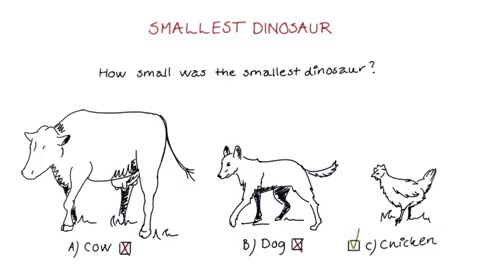 SMALLEST DINOSAUR
How small was the smallest dinosaur?
A) Cow
B) Dog
C) Chicken